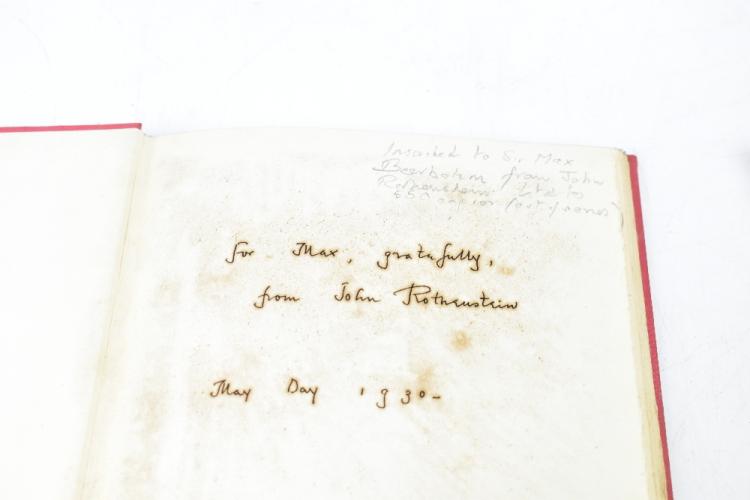 Inscribed to Sir Max
Beerbohm from John
Rothenstein. Ltd to
copies (out of series)
for Max, gratefully,
from John Rothenstein
May Day 1930-